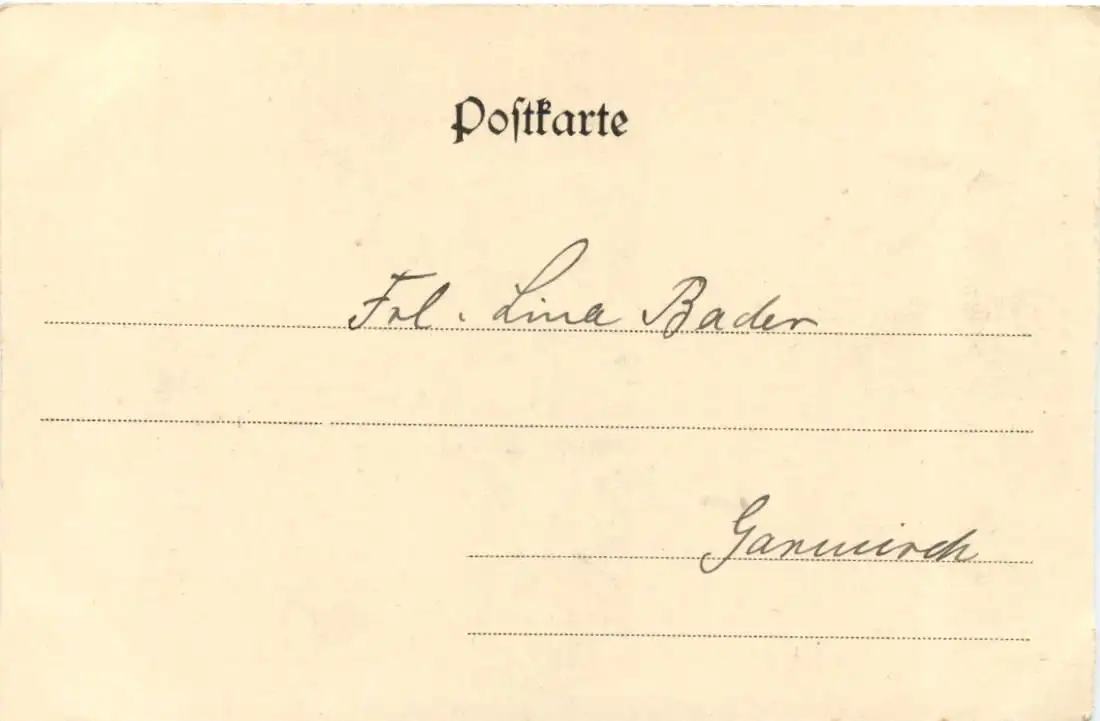 Poſtkarte
Frl. Lina Bader
Garmisch